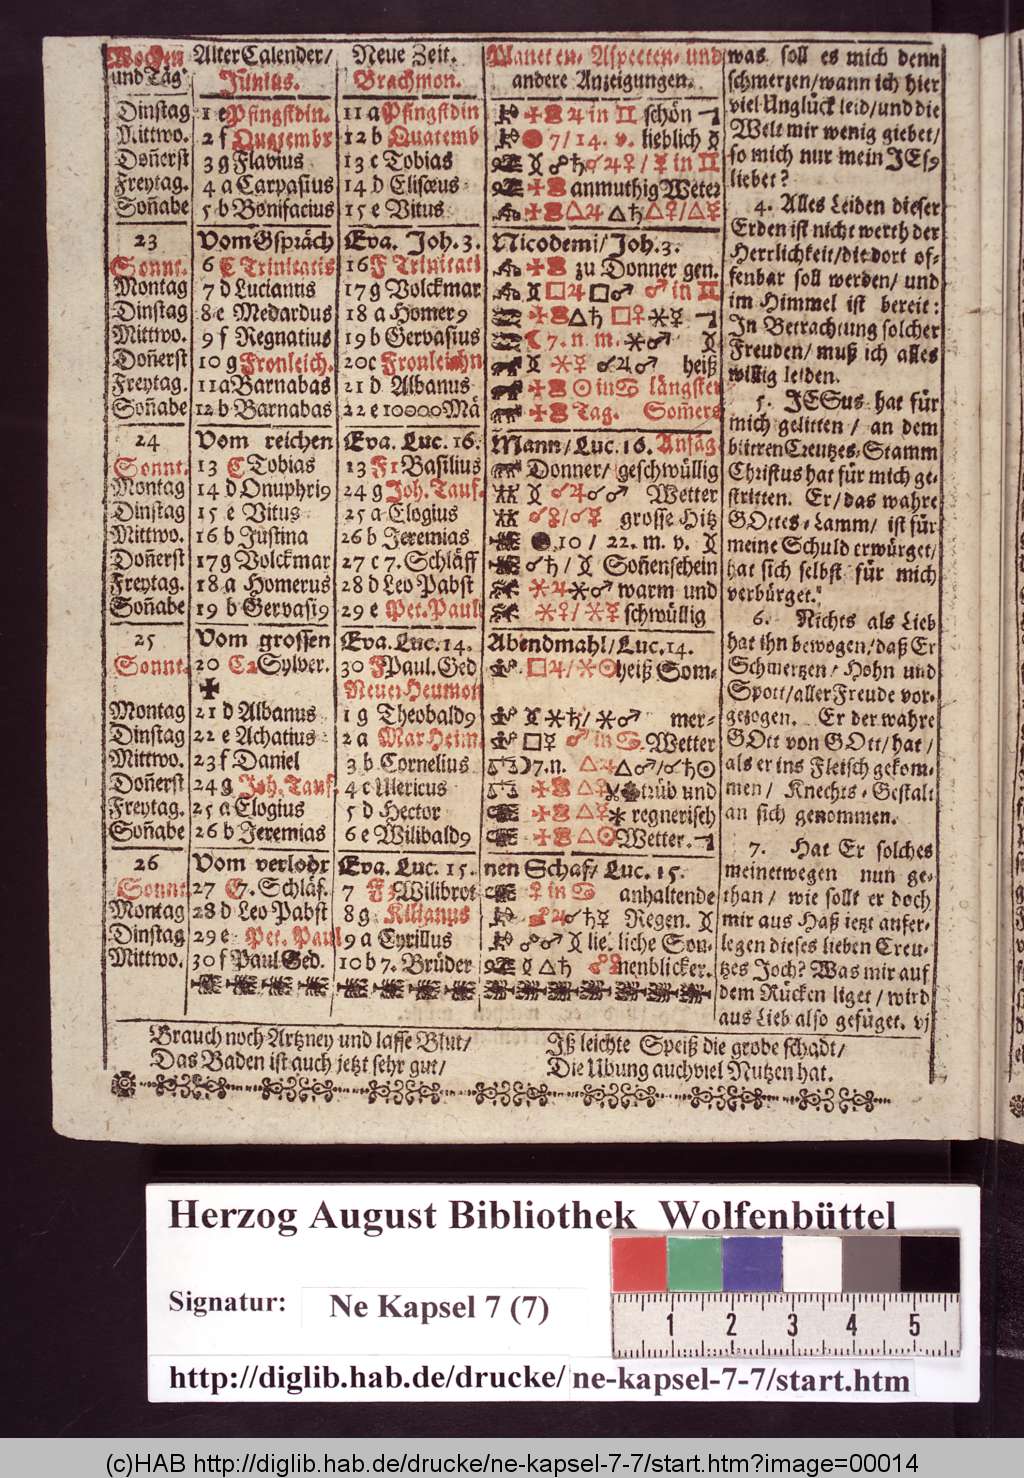 Wochen und Tåg. Alter Calender/ Junius. Neue Zeit. Brachmon. Planeten-Aspecten- und andere Anzeigungen.
Dinstag 1 e Pfingstdin. 11 a Pfingstdin ♃ in ♊ schön
Mittwo. 2 f Quatembr 12 b Quatemb 7/14. v. lieblich
Don̄erst 3 g Flavius 13 c Tobias ☍♄☌♃♀/☿ in ♊
Freytag. 4 a Carpasius 14 d Elisœus anmuthig Weter
Son̄abe 5 b Bonifacius 15 e Vitus △♃ △♄△♀/△☿
23 Vom Gspräch Eva. Joh. 3. Nicodemi/Joh. 3.
Sonnt. 6 C Trinitatis 16 F Trinitati zu Donner gen.
Montag 7 d Lucianus 17 g Volckmar □♃ □♂ ♂ in ♊
Dinstag 8 e Medardus 18 a Homer9 △♄ □♀⚹☿
Mittwo. 9 f Regnatius 19 b Gervasius ☾7. n. m. ⚹♂
Don̄erst 10 g Fronleich. 20 c Fronleichn ⚹☿ ☌♃♂ heiß
Freytag. 11 a Barnabas 21 d Albanus ☉ in ♋ längster
Son̄abe 12 b Barnabas 22 e 10000 Mä Tag. Somers
24 Vom reichen Eva. Luc. 16. Mann/Luc. 16. Anfäg
Sonnt. 13 C Tobias 13 F1 Basilius Donner/geschwüllig
Montag 14 d Onuphri9 24 g Joh. Tauf. ☌♃☌♂ Wetter
Dinstag 15 e Vitus 25 a Elogius ☌♀/☌☿ grosse Hitz
Mittwo. 16 b Justina 26 b Jeremias 10/22. m. v.
Don̄erst 17 g Volckmar 27 c 7. Schläff ☌♄/ Son̄enschein
Freytag. 18 a Homerus 28 d Leo Pabst ⚹♃⚹♂ warm und
Son̄abe 19 b Gervasi9 29 e Pet. Paul ⚹♀/⚹☿ schwüllig
25 Vom grossen Eva. Luc. 14. Abendmahl/Luc. 14.
Sonnt. 20 C2 Sylver. 30 F Paul. Ged □♃/⚹☉ heiß Som-
✠ Neuer Heumon
Montag 21 d Albanus 1 g Theobald9 ⚹♄/⚹♂ mer-
Dinstag 22 e Achatius 2 a Mar Heim. □☿ ♂ in ♋. Wetter
Mittwo. 23 f Daniel 3 b Cornelius ☽7. n. △♃△♂/☌♄☉
Don̄erst 24 g Joh. Tauf. 4 c Ulericus △♀ trüb und
Freytag. 25 a Elogius 5 d Hector △☿ ⚹ regnerisch
Son̄abe 26 b Jeremias 6 e Wilibald9 △☉ Wetter.
26 Vom verlohr Eva. Luc. 15. nen Schaf/Luc. 15.
Sonnt 27 C7. Schläf. 7 Wilibrot ♀ in ♋ anhaltende
Montag 28 d Leo Pabst 8 g Kilianus ♃☌♄☿ Regen.
Dinstag 29 e Pet. Paul 9 a Cyrillus ☍☍♂ lie. liche Son-
Mittwo. 30 f Paul Ged. 10 b 7. Brüder △♄ nenblicker.
was soll es mich denn
schmerzen/wann ich hier
viel Unglück leid/und die
Welt mir wenig giebet/
so mich nur mein JEs-
liebet?
4. Alles Leiden dieser
Erden ist nicht werth der
Herrlichkeit/die dort of-
fenbar soll werden/ und
im Himmel ist bereit:
In Betrachtung solcher
Freuden/ muß ich alles
willig leiden.
5. JESus hat für
mich gelitten / an dem
bittren Creutzes-Stamm
Christus hat für mich ge-
stritten. Er/das wahre
GOttes-Lamm/ ist für
meine Schuld erwürget/
hat sich selbst für mich
verbürget.
6. Nichts als Lieb
hat ihn bewogen/daß Er
Schmertzen/ Hohn und
Spott/aller Freude vor-
gezogen. Er der wahre
GOtt von GOtt/hat/
als er ins Fleisch gekom-
men/ Knechts-Gestalt
an sich genommen.
7. Hat Er solches
meinetwegen nun ge-
than/ wie sollt er doch
mir aus Haß jetzt aufer-
legen dieses lieben Creu-
tzes Joch? Was mir auf
dem Rücken liget/ wird
aus Lieb also gefüget. vj
Brauch noch Artzney und lasse Blut/
Das Baden ist auch jetzt sehr gut/
Iß leichte Speiß die grobe schadt/
Die Ubung auch viel Nutzen hat.
Herzog August Bibliothek Wolfenbüttel
Signatur: Ne Kapsel 7 (7)
1 2 3 4 5
http://diglib.hab.de/drucke/ ne-kapsel-7-7/start.htm
(c)HAB http://diglib.hab.de/drucke/ne-kapsel-7-7/start.htm?image=00014